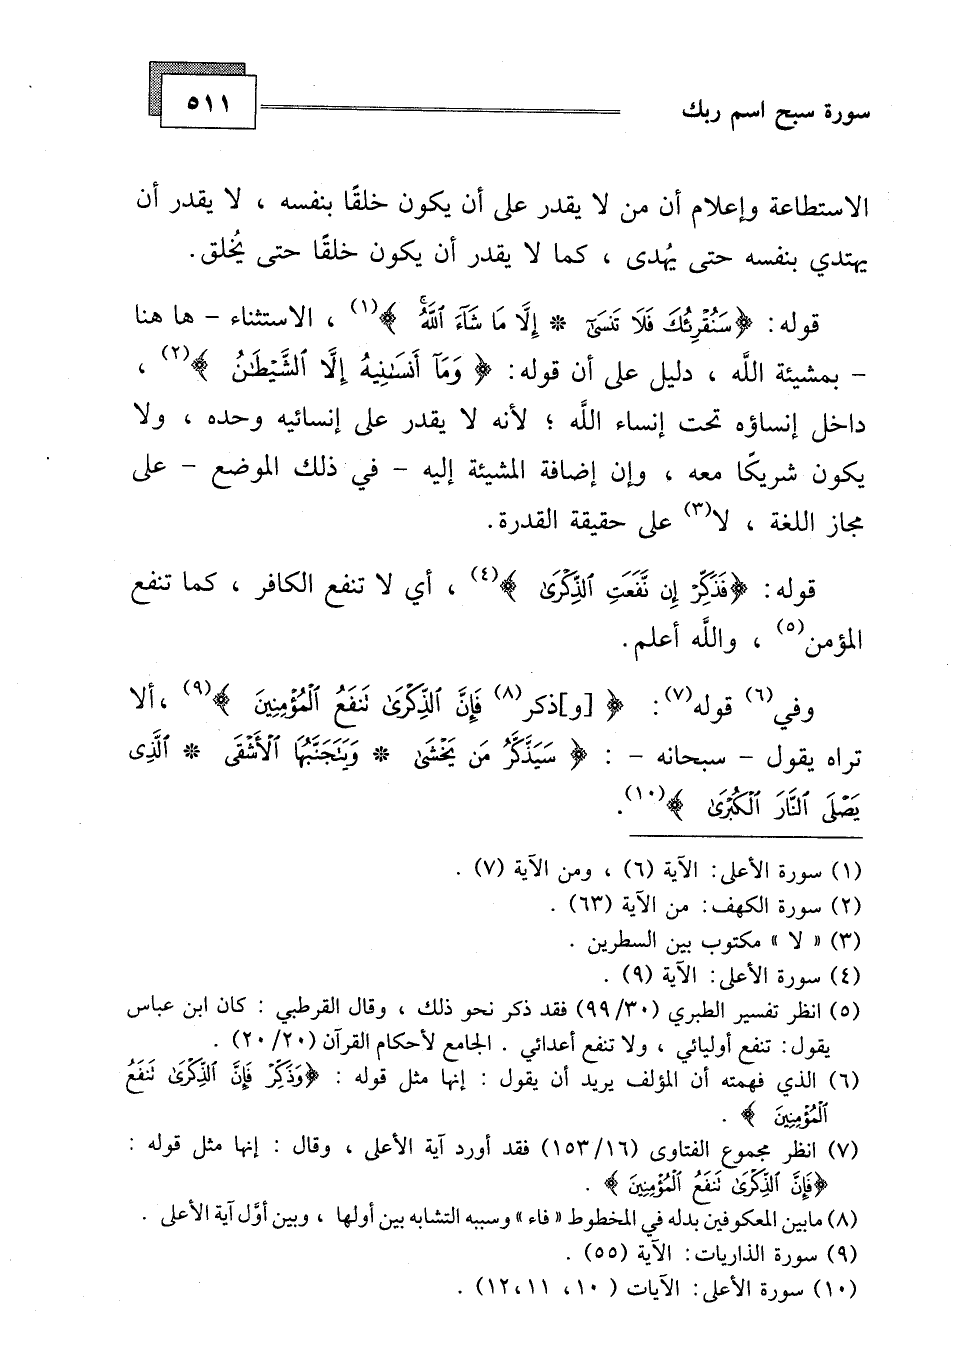 سورة سبح اسم ربك
٥١١
الاستطاعة وإعلام أن من لا يقدر على أن يكون خلقًا بنفسه ، لا يقدر أن
يهتدي بنفسه حتى يُهدى ، كما لا يقدر أن يكون خلقًا حتى يُخلق.
قوله: ﴿ سَنُقْرِئُكَ فَلَا تَنسَىٰٓ * إِلَّا مَا شَآءَ ٱللَّهُ ﴾(١) ، الاستثناء – ها هنا
– بمشيئة اللَّه ، دليل على أن قوله: ﴿ وَمَآ أَنسَىٰنِيهُ إِلَّا ٱلشَّيْطَٰنُ ﴾(٢) ،
داخل إنساؤه تحت إنساء اللَّه ؛ لأنه لا يقدر على إنسائيه وحده ، ولا
يكون شريكًا معه ، وإن إضافة المشيئة إليه – في ذلك الموضع – على
مجاز اللغة ، لا(٣) على حقيقة القدرة.
قوله: ﴿ فَذَكِّرْ إِن نَّفَعَتِ ٱلذِّكْرَىٰ ﴾(٤) ، أي لا تنفع الكافر ، كما تنفع
المؤمن(٥) ، واللَّه أعلم.
وفي(٦) قوله(٧): ﴿ [و]ذكر(٨) فَإِنَّ ٱلذِّكْرَىٰ تَنفَعُ ٱلْمُؤْمِنِينَ ﴾(٩) ،ألا
تراه يقول – سبحانه – : ﴿ سَيَذَّكَّرُ مَن يَخْشَىٰ * وَيَتَجَنَّبُهَا ٱلْأَشْقَى * ٱلَّذِى
يَصْلَى ٱلنَّارَ ٱلْكُبْرَىٰ ﴾(١٠).
(١) سورة الأعلى: الآية (٦) ، ومن الآية (٧) .
(٢) سورة الكهف: من الآية (٦٣) .
(٣) « لا » مكتوب بين السطرين .
(٤) سورة الأعلى: الآية (٩) .
(٥) انظر تفسير الطبري (٩٩/٣٠) فقد ذكر نحو ذلك ، وقال القرطبي : كان ابن عباس
يقول: تنفع أوليائي ، ولا تنفع أعدائي . الجامع لأحكام القرآن (٢٠/٢٠) .
(٦) الذي فهمته أن المؤلف يريد أن يقول : إنها مثل قوله : ﴿ وَذَكِّرْ فَإِنَّ ٱلذِّكْرَىٰ تَنفَعُ
ٱلْمُؤْمِنِينَ ﴾ .
(٧) انظر مجموع الفتاوى (١٥٣/١٦) فقد أورد آية الأعلى ، وقال : إنها مثل قوله :
﴿ فَإِنَّ ٱلذِّكْرَىٰ تَنفَعُ ٱلْمُؤْمِنِينَ ﴾ .
(٨) مابين المعكوفين بدله في المخطوط « فاء » وسببه التشابه بين أولها ، وبين أوَّل آية الأعلى .
(٩) سورة الذاريات: الآية (٥٥) .
(١٠) سورة الأعلى: الآيات ( ١٠، ١١ ،١٢) .